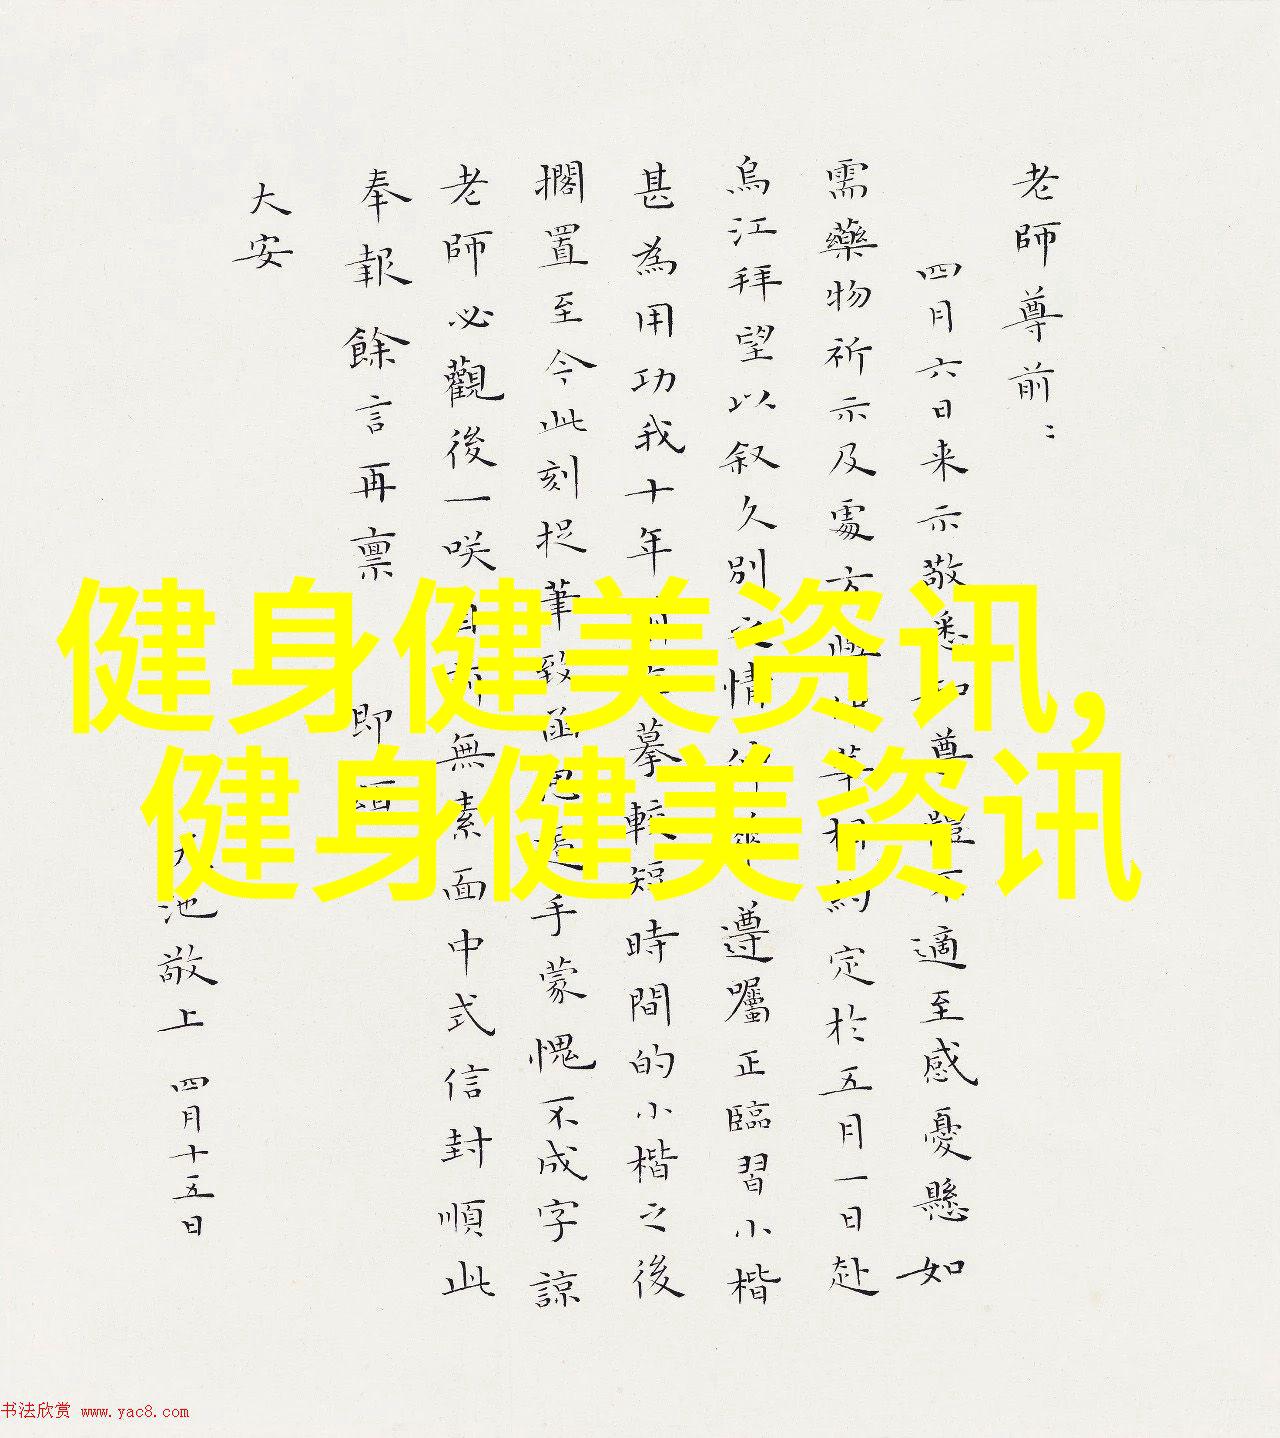 老師尊前：
四月六日来示敬悉知尊體不適至感憂懸如
需藥物祈示及處方
烏江拜望以叙久別之情
遵囑正臨習小楷
甚為用功我十年
摹較短時間的小楷之後
擱置至今此刻捉筆致函
手蒙愧不成字諒
老師必觀後一咲
無素面中式信封順此
奉報餘言再禀
即
大安
池敬上 四月十五日
約定於五月一日赴
健身健美资讯,
健身健美资讯
书法欣赏 www.yac8.com